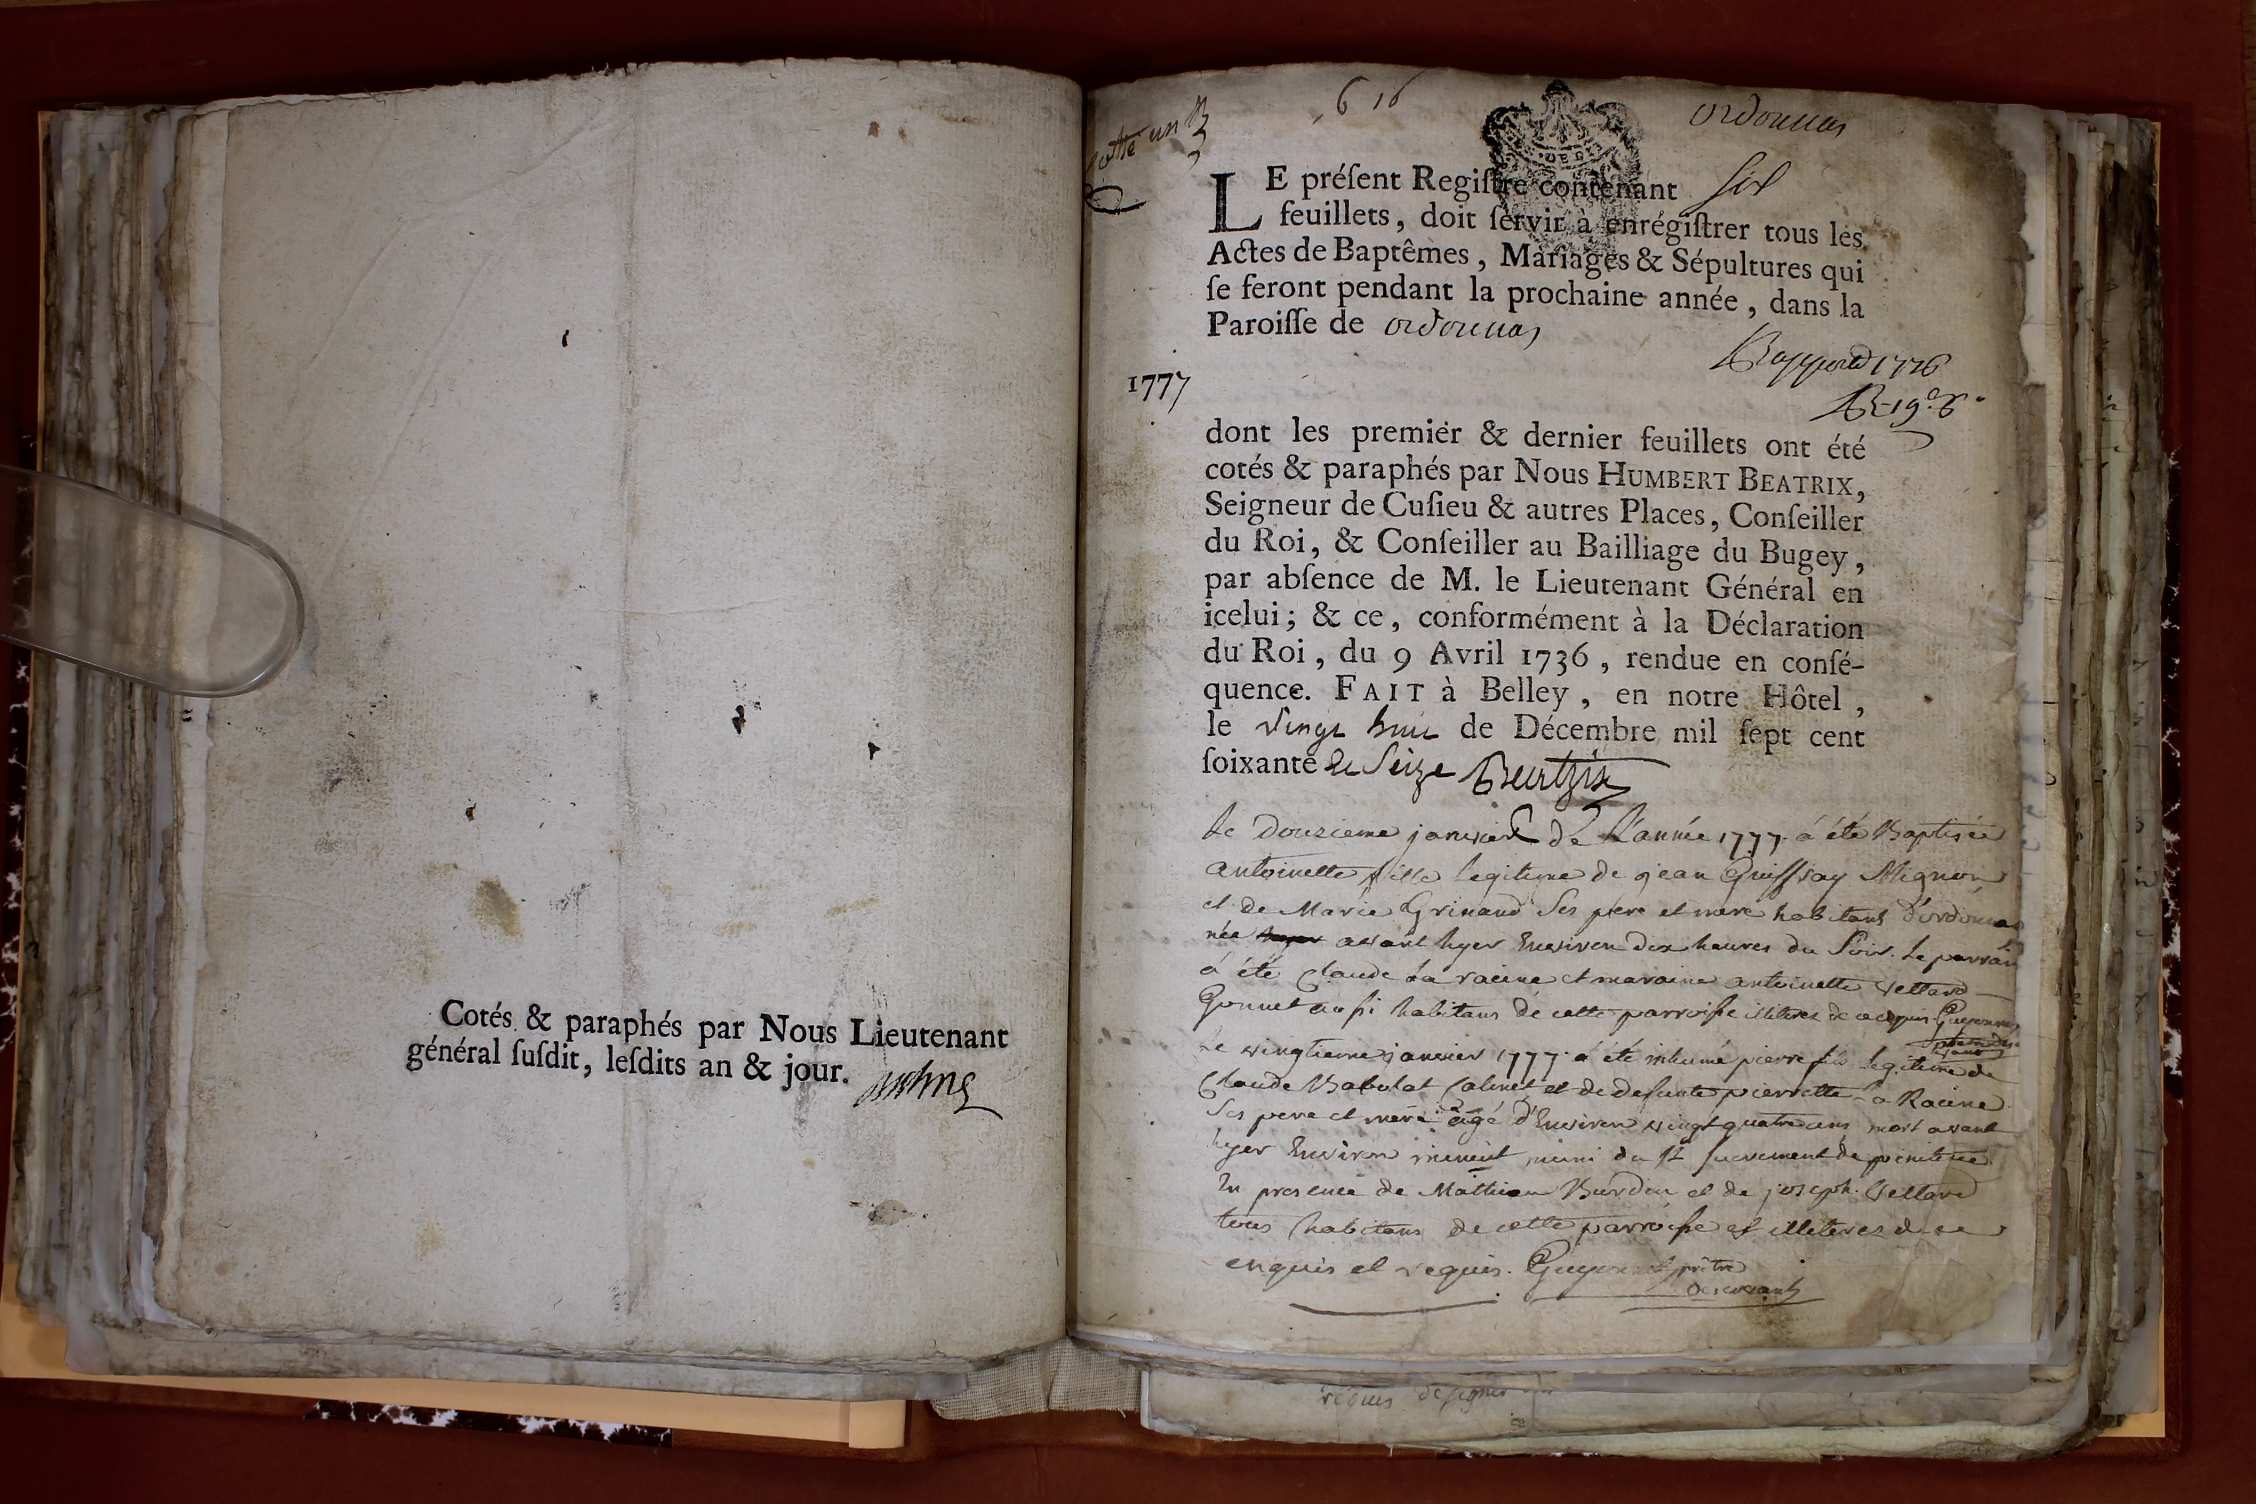 Cotés & paraphés par Nous Lieutenant
général ſuſdit, leſdits an & jour.
Cotte un
6 16
ordonnas
LE préſent Regiſtre contenant six
feuillets, doit ſervir à enrégiſtrer tous les
Actes de Baptêmes, Mariages & Sépultures qui
ſe feront pendant la prochaine année, dans la
Paroiſſe de ordonnas
1777
dont les premier & dernier feuillets ont été
cotés & paraphés par Nous HUMBERT BEATRIX,
Seigneur de Cuſieu & autres Places, Conſeiller
du Roi, & Conſeiller au Bailliage du Bugey,
par abſence de M. le Lieutenant Général en
icelui; & ce, conformément à la Déclaration
du Roi, du 9 Avril 1736, rendue en conſé-
quence. FAIT à Belley, en notre Hôtel,
le vingt huit de Décembre mil ſept cent
ſoixante et seize Beatrix
le douzieme janvier de l'année 1777 á été Baptisée
antoinette fille legitime de jean Mignon
et de Marie Grinand ses pere et mere habitans d'ordonnas
née avant hyer environ dix heures du soir. le parrain
á été Claude la racine et maraine antoinette vettard
Gonnet aussi habitans de cette parroisse illiteres de ce enquis
le vingtieme janvier 1777 á été inhumé pierre fils legitime de
Claude Babolat Calinet et de defunte pierrette la Racine
ses pere et mere agé d'environ vingt quatre ans mort avant
hyer environ minuit muni du st sacrement de penitence
en presence de Mathieu Burdin et de joseph vettard
tous habitans de cette parroisse et illiteres de ce
enquis et requis. prêtre
desservant
requis designer